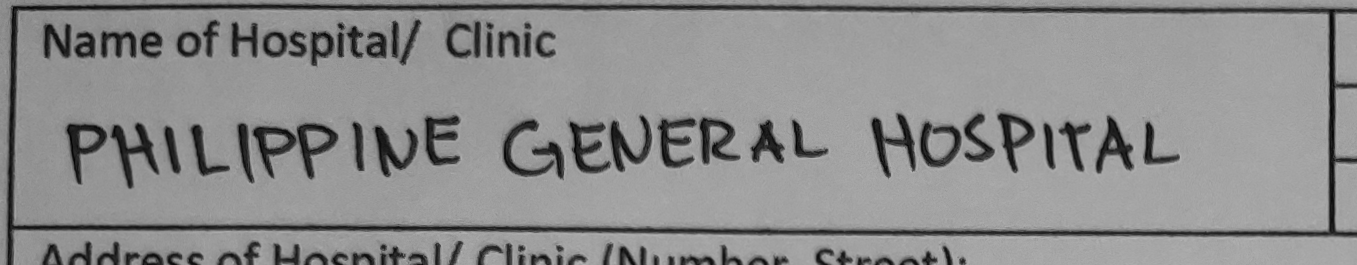 Name of Hospital/ Clinic
PHILIPPINE GENERAL HOSPITAL
Address of Hospital/ Clinic (Number, Street):